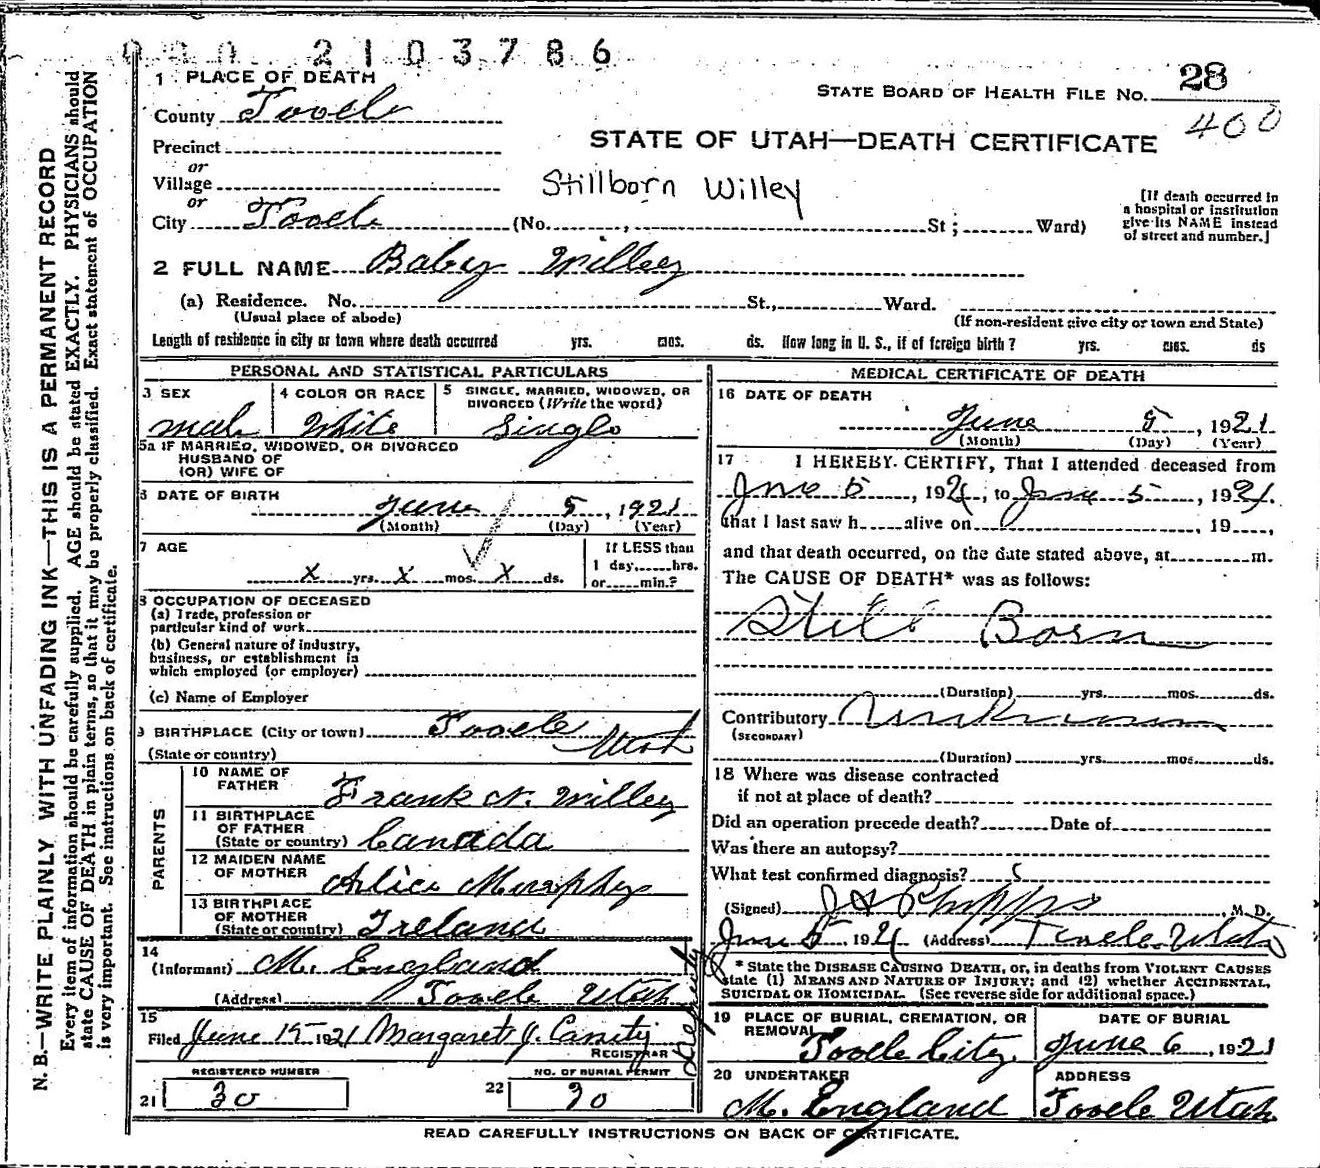 000 2103786
1 PLACE OF DEATH
STATE BOARD OF HEALTH FILE NO. 28
400
County Tooele
STATE OF UTAH—DEATH CERTIFICATE
Precinct
or
Village
Stillborn Willey
or
City Tooele (No. , St; Ward)
[If death occurred in
a hospital or institution
give its NAME instead
of street and number.]
2 FULL NAME Baby Willey
(a) Residence. No. St., Ward.
(Usual place of abode) (If non-resident give city or town and State)
Length of residence in city or town where death occurred yrs. mos. ds. How long in U. S., if of foreign birth? yrs. mos. ds
PERSONAL AND STATISTICAL PARTICULARS
3 SEX 4 COLOR OR RACE 5 SINGLE, MARRIED, WIDOWED, OR
DIVORCED (Write the word)
male White Single
5a IF MARRIED, WIDOWED, OR DIVORCED
HUSBAND OF
(OR) WIFE OF
6 DATE OF BIRTH
June 5, 1921
(Month) (Day) (Year)
7 AGE If LESS than
1 day, hrs.
x yrs. x mos. x ds. or min.?
8 OCCUPATION OF DECEASED
(a) Trade, profession or
particular kind of work
(b) General nature of industry,
business, or establishment in
which employed (or employer)
(c) Name of Employer
9 BIRTHPLACE (City or town) Tooele
(State or country) Utah
PARENTS
10 NAME OF
FATHER Frank N. Willey
11 BIRTHPLACE
OF FATHER
(State or country) Canada
12 MAIDEN NAME
OF MOTHER Alice Murphy
13 BIRTHPLACE
OF MOTHER
(State or country) Ireland
14
(Informant) M. England
(Address) Tooele Utah
15
Filed June 15 1921 Margaret J. Cassity
REGISTRAR
Deputy
REGISTERED NUMBER NO. OF BURIAL PERMIT
21 30 22 30
MEDICAL CERTIFICATE OF DEATH
16 DATE OF DEATH
June 5, 1921
(Month) (Day) (Year)
17 I HEREBY CERTIFY, That I attended deceased from
June 5, 1921, to June 5, 1921.
that I last saw h alive on , 19 ,
and that death occurred, on the date stated above, at m.
The CAUSE OF DEATH* was as follows:
Still Born
(Duration) yrs. mos. ds.
Contributory Unknown
(SECONDARY)
(Duration) yrs. mos. ds.
18 Where was disease contracted
if not at place of death?
Did an operation precede death? Date of
Was there an autopsy?
What test confirmed diagnosis?
(Signed) J A Phipps, M. D.
June 5, 1921 (Address) Tooele Utah
* State the DISEASE CAUSING DEATH, or, in deaths from VIOLENT CAUSES
state (1) MEANS AND NATURE OF INJURY; and (2) whether ACCIDENTAL,
SUICIDAL OR HOMICIDAL. (See reverse side for additional space.)
19 PLACE OF BURIAL, CREMATION, OR DATE OF BURIAL
REMOVAL
Tooele City. June 6, 1921
20 UNDERTAKER ADDRESS
M. England Tooele Utah
READ CAREFULLY INSTRUCTIONS ON BACK OF CERTIFICATE.
N. B.—WRITE PLAINLY, WITH UNFADING INK—THIS IS A PERMANENT RECORD
Every item of information should be carefully supplied. AGE should be stated EXACTLY. PHYSICIANS should
state CAUSE OF DEATH in plain terms, so that it may be properly classified. Exact statement of OCCUPATION
is very important. See instructions on back of certificate.